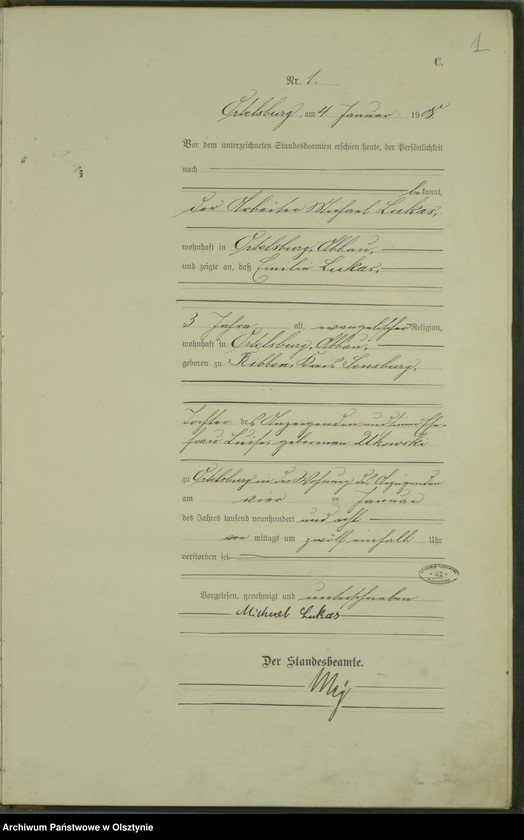 1
C.
Nr. 1.
Ortelsburg, am 4 Januar 1908
Vor dem unterzeichneten Standesbeamten erschien heute, der Persönlichkeit
nach
bekannt,
der Arbeiter Michael Lukas,
wohnhaft in Ortelsburg, Abbau,
und zeigte an, daß Emilie Lukas,
3 Jahre alt, evangelischer Religion,
wohnhaft in Ortelsburg, Abbau,
geboren zu Ribben, Kreis Sensburg,
Tochter des Anzeigenden und seiner Ehe-
frau Luise, geborenen
zu Ortelsburg in der Wohnung des Anzeigenden
am vier ten Januar
des Jahres tausend neunhundert und acht
vor mittags um zwölf einhalb Uhr
verstorben sei.
Vorgelesen, genehmigt und unterschrieben
Michael Lukas
Der Standesbeamte.
Archiwum Państwowe w Olsztynie